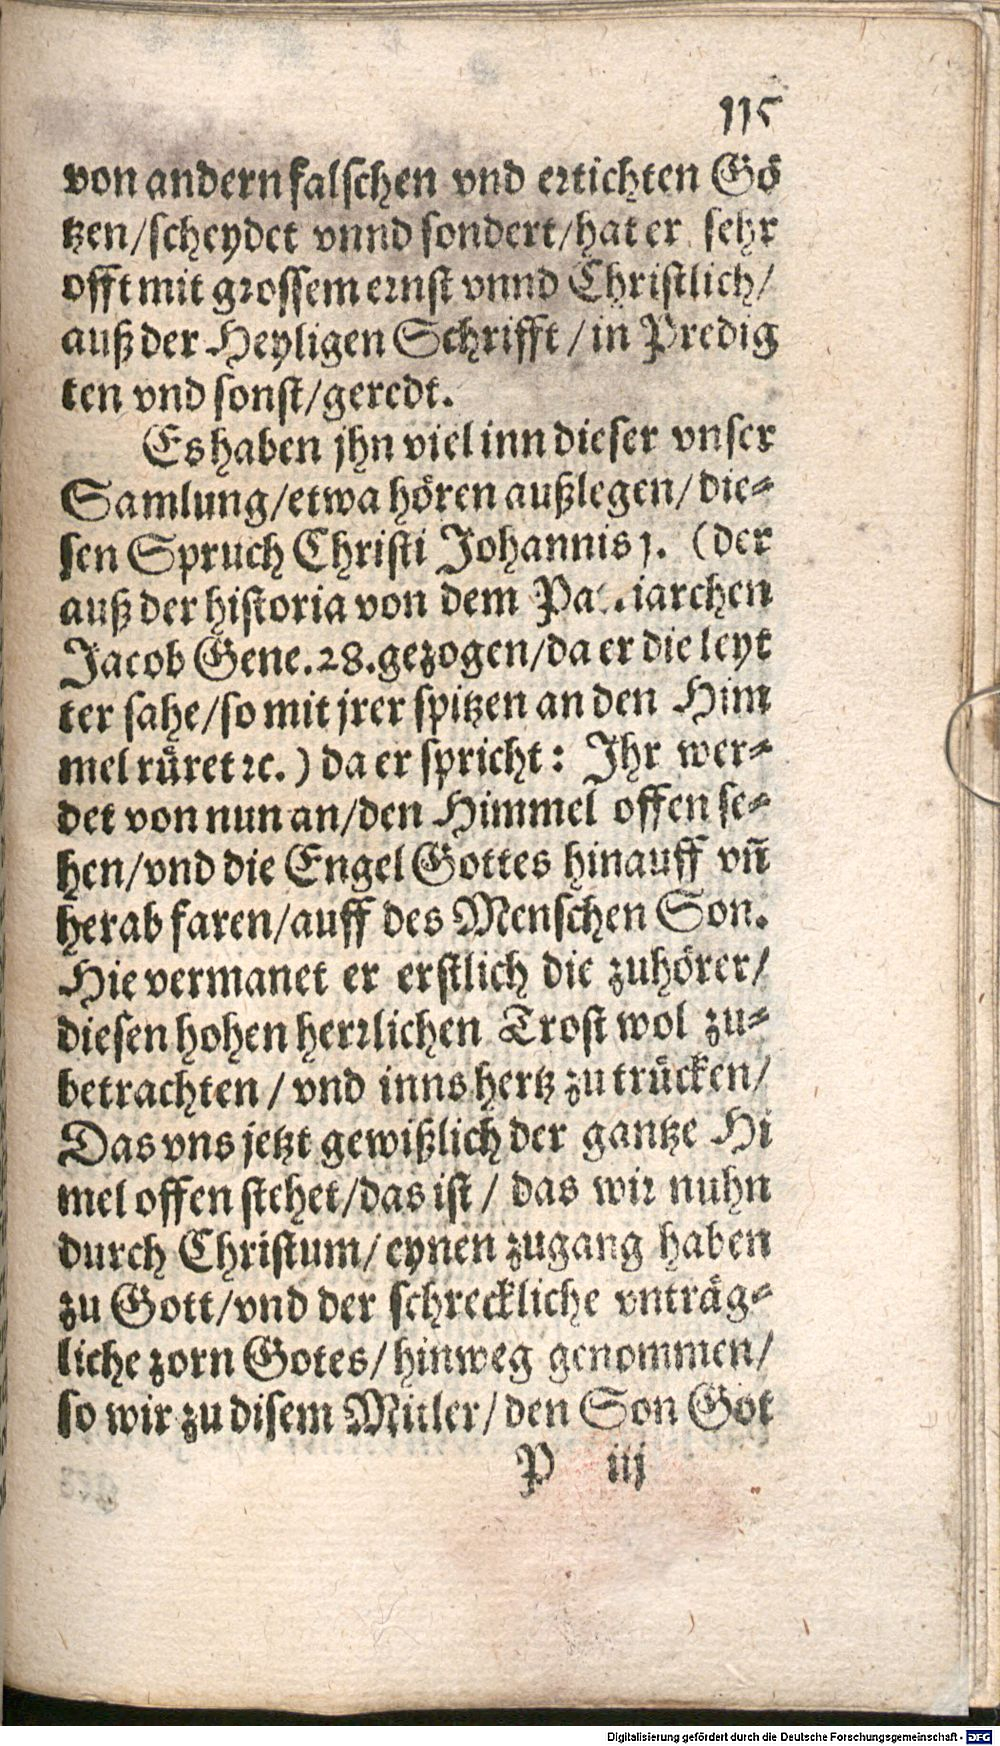 115
von andern falschen vnd ertichten Gö
tzen/scheydet vnnd sondert/hat er sehr
offt mit grossem ernst vnnd Christlich/
auß der Heyligen Schrifft/in Predig
ten vnd sonst/geredt.
Es haben jhn viel inn dieser vnser
Samlung/etwa hören außlegen/die-
sen Spruch Christi Johannis j. (der
auß der historia von dem Patriarchen
Jacob Gene.28.gezogen/da er die leyt
ter sahe/so mit jrer spitzen an den Him
mel rüret ꝛc.) da er spricht: Ihr wer-
det von nun an/den Himmel offen se-
hen/vnd die Engel Gottes hinauff vñ
herab faren/auff des Menschen Son.
Hie vermanet er erstlich die zuhörer/
diesen hohen herrlichen Trost wol zu-
betrachten/vnd inns hertz zu trücken/
Das vns jetzt gewißlich der gantze Hi
mel offen stehet/das ist/ das wir nuhn
durch Christum/eynen zugang haben
zu Gott/vnd der schreckliche vnträg-
liche zorn Gotes/hinweg genommen/
so wir zu disem Mitler/den Son Got
P iij
Digitalisierung gefördert durch die Deutsche Forschungsgemeinschaft - DFG